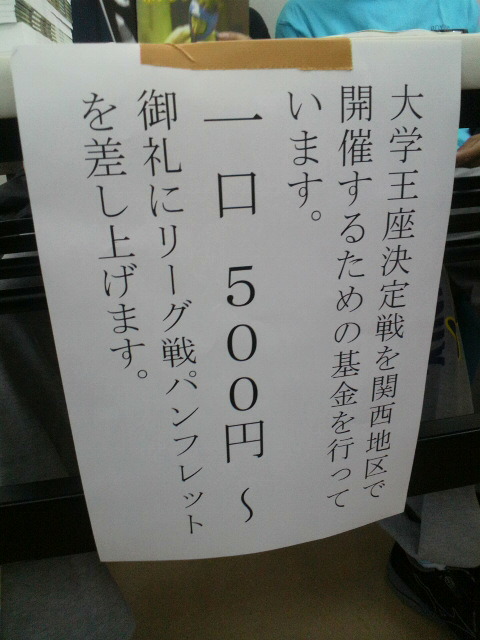 大学王座決定戦を関西地区で
開催するための基金を行って
います。
一口 500円～
御礼にリーグ戦パンフレット
を差し上げます。